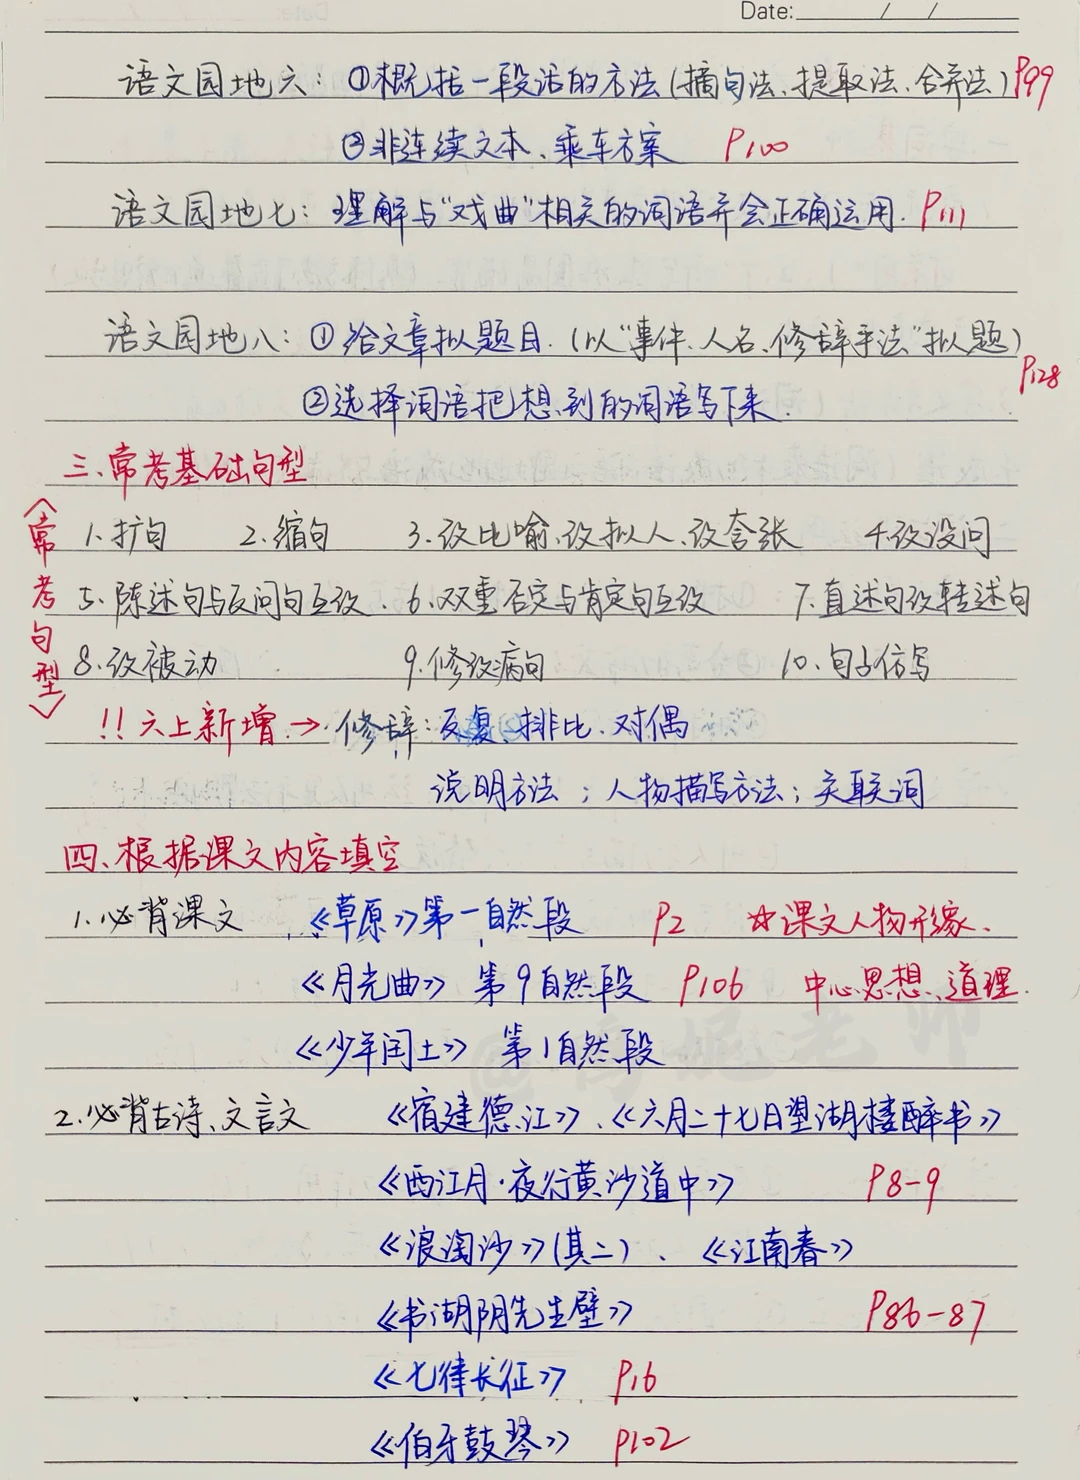 Date: / /
语文园地六：①概括一段话的方法(摘句法、提取法、合并法) P99
②非连续文本、乘车方案 P100
语文园地七：理解与“戏曲”相关的词语并会正确运用. P111
语文园地八：①给文章拟题目.(以“事件、人名、修辞手法”拟题)
P128
②选择词语把想到的词语写下来.
三、常考基础句型
〈常考句型〉
1.扩句 2.缩句 3.改比喻、改拟人、改夸张 4.改设问
5.陈述句与反问句互改. 6.双重否定与肯定句互改 7.直述句改转述句
8.改被动 9.修改病句 10.句子仿写
!! 六上新增→修辞：反复、排比、对偶
说明方法；人物描写方法；关联词
四、根据课文内容填空
1.必背课文 《草原》第一自然段 P2 ☆课文人物形象、
《月光曲》 第9自然段 P106 中心思想、道理.
《少年闰土》 第1自然段
@高妮老师
2.必背古诗、文言文 《宿建德江》、《六月二十七日望湖楼醉书》
《西江月·夜行黄沙道中》 P8-9
《浪淘沙》(其一)、《江南春》
《书湖阴先生壁》 P86-87
《七律长征》 P16
《伯牙鼓琴》 P102